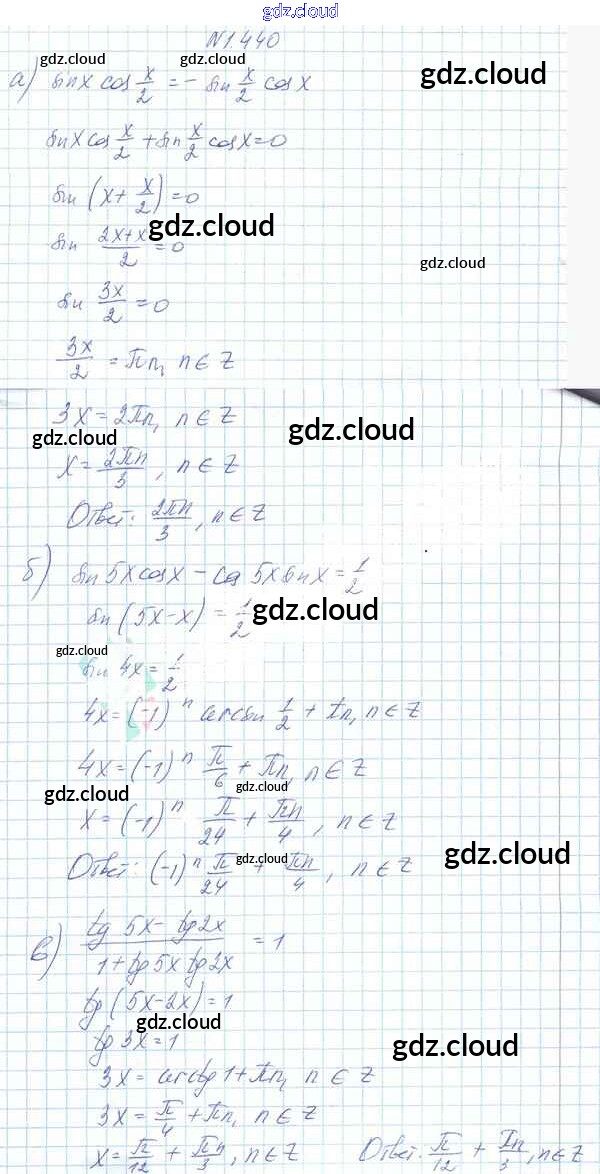 gdz.cloud
N1.440
gdz.cloud gdz.cloud gdz.cloud
а) sin x cos x/2 = - sin x/2 cos x
sin x cos x/2 + sin x/2 cos x = 0
sin (x + x/2) = 0
gdz.cloud
sin (2x+x)/2 = 0
gdz.cloud
sin 3x/2 = 0
3x/2 = πn, n ∈ Z
3x = 2πn, n ∈ Z
gdz.cloud gdz.cloud
x = 2πn/3, n ∈ Z
Ответ: 2πn/3, n ∈ Z
б) sin 5x cos x - cos 5x sin x = 1/2
sin (5x-x) = 1/2
gdz.cloud
gdz.cloud
sin 4x = 1/2
4x = (-1)^n arcsin 1/2 + πn, n ∈ Z
4x = (-1)^n π/6 + πn, n ∈ Z
gdz.cloud gdz.cloud
x = (-1)^n π/24 + πn/4, n ∈ Z
gdz.cloud gdz.cloud
Ответ: (-1)^n π/24 + πn/4, n ∈ Z
в) (tg 5x - tg 2x)/(1 + tg 5x tg 2x) = 1
tg (5x-2x) = 1
gdz.cloud
tg 3x = 1
gdz.cloud
3x = arctg 1 + πn, n ∈ Z
3x = π/4 + πn, n ∈ Z
x = π/12 + πn/3, n ∈ Z Ответ: π/12 + πn/3, n ∈ Z